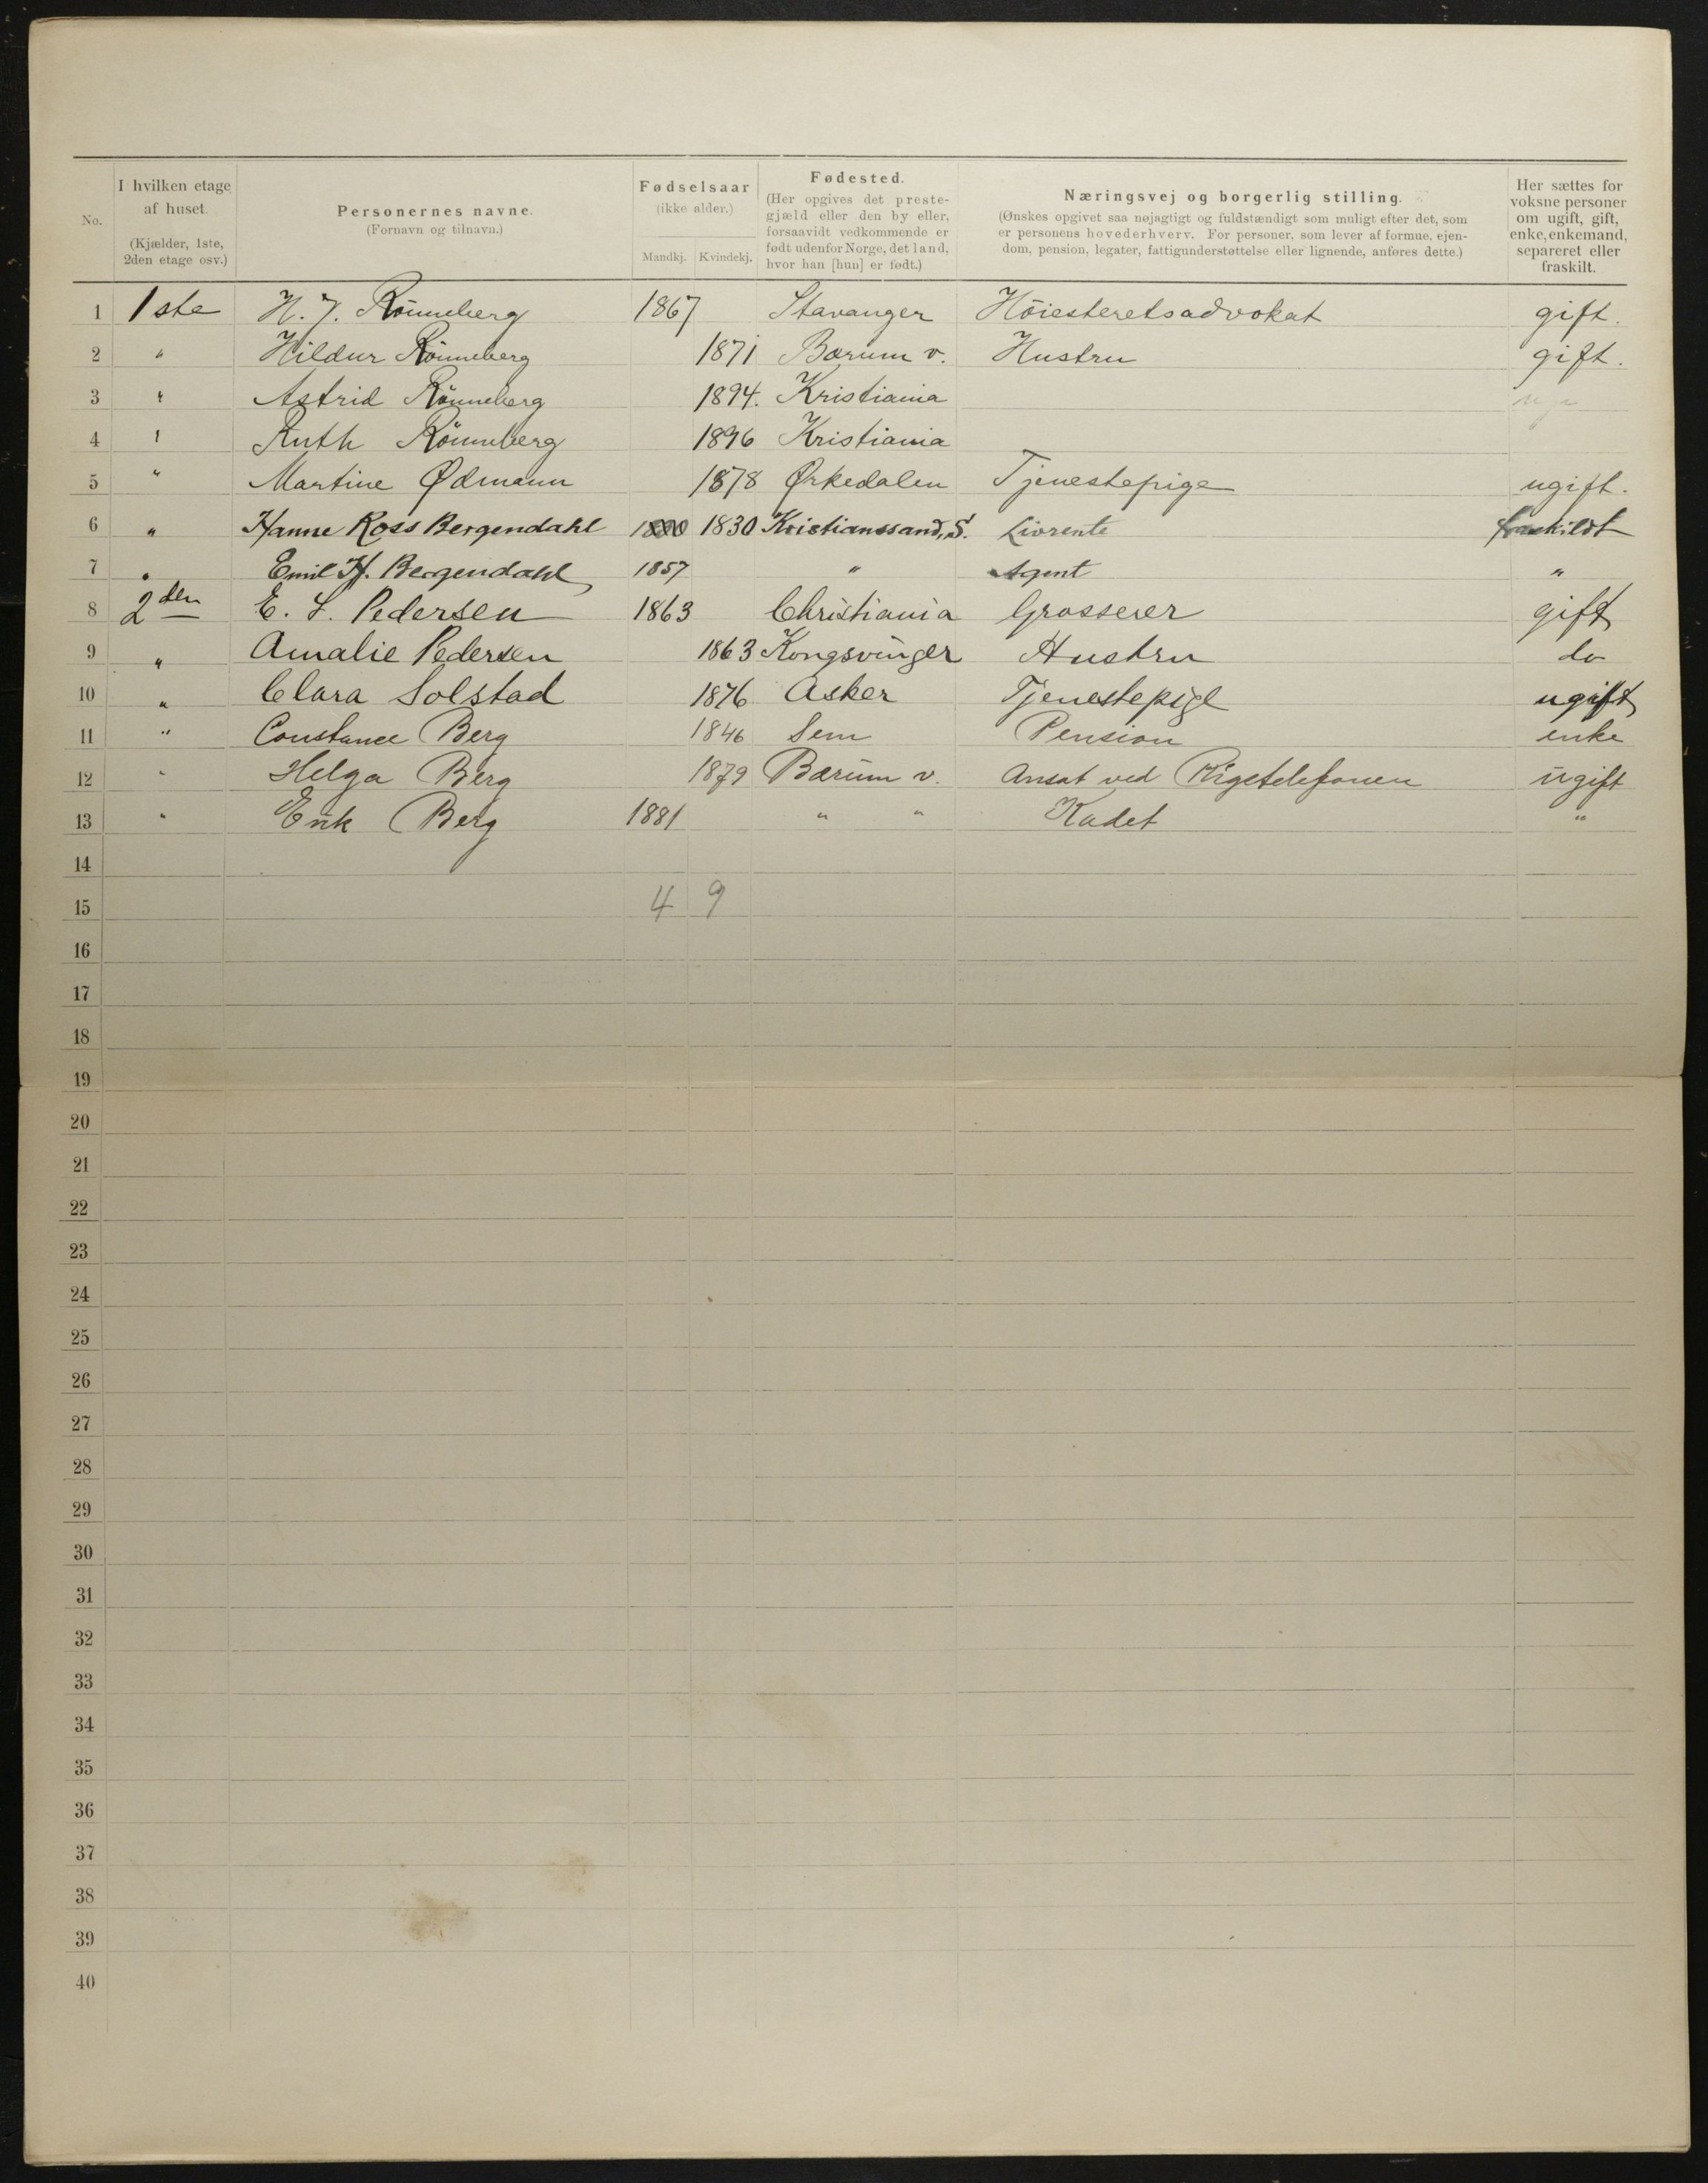 No. | I hvilken etage af huset. (Kjælder, 1ste, 2den etage osv.) | Personernes navne. (Fornavn og tilnavn.) | Fødselsaar (ikke alder.) Mandkj. Kvindekj. | Fødested. (Her opgives det prestegjæld eller den by eller, forsaavidt vedkommende er født udenfor Norge, det land, hvor han [hun] er født.) | Næringsvej og borgerlig stilling. (Ønskes opgivet saa nøjagtigt og fuldstændigt som muligt efter det, som er personens hovederhverv. For personer, som lever af formue, ejendom, pension, legater, fattigunderstøttelse eller lignende, anføres dette.) | Her sættes for voksne personer om ugift, gift, enke, enkemand, separeret eller fraskilt.
1 1ste H. J. Rönneberg 1867 Stavanger Höiesteretsadvokat gift.
2 " Hildur Rönneberg 1871 Bærum v. Hustru gift.
3 " Astrid Rönneberg 1894. Kristiania
4 " Ruth Rönneberg 1896 Kristiania
5 " Martine Ødmann 1878 Ørkedalen Tjenestepige ugift.
6 " Hanne Ross Bergendahl 1830 Kristianssand, S. Livrente fraskildt
7 " Emil H. Bergendahl 1857 " Agent "
8 2den E. L. Pedersen 1863 Christiania Grosserer gift
9 " Amalie Pedersen 1863 Kongsvinger Hustru do
10 " Clara Solstad 1876 Asker Tjenestepige ugift
11 " Constance Berg 1846 Sem Pension enke
12 " Helga Berg 1879 Bærum v. Ansat ved Rigstelefonen ugift
13 " Erik Berg 1881 " " Kadet "
14
15 4 9
16
17
18
19
20
21
22
23
24
25
26
27
28
29
30
31
32
33
34
35
36
37
38
39
40